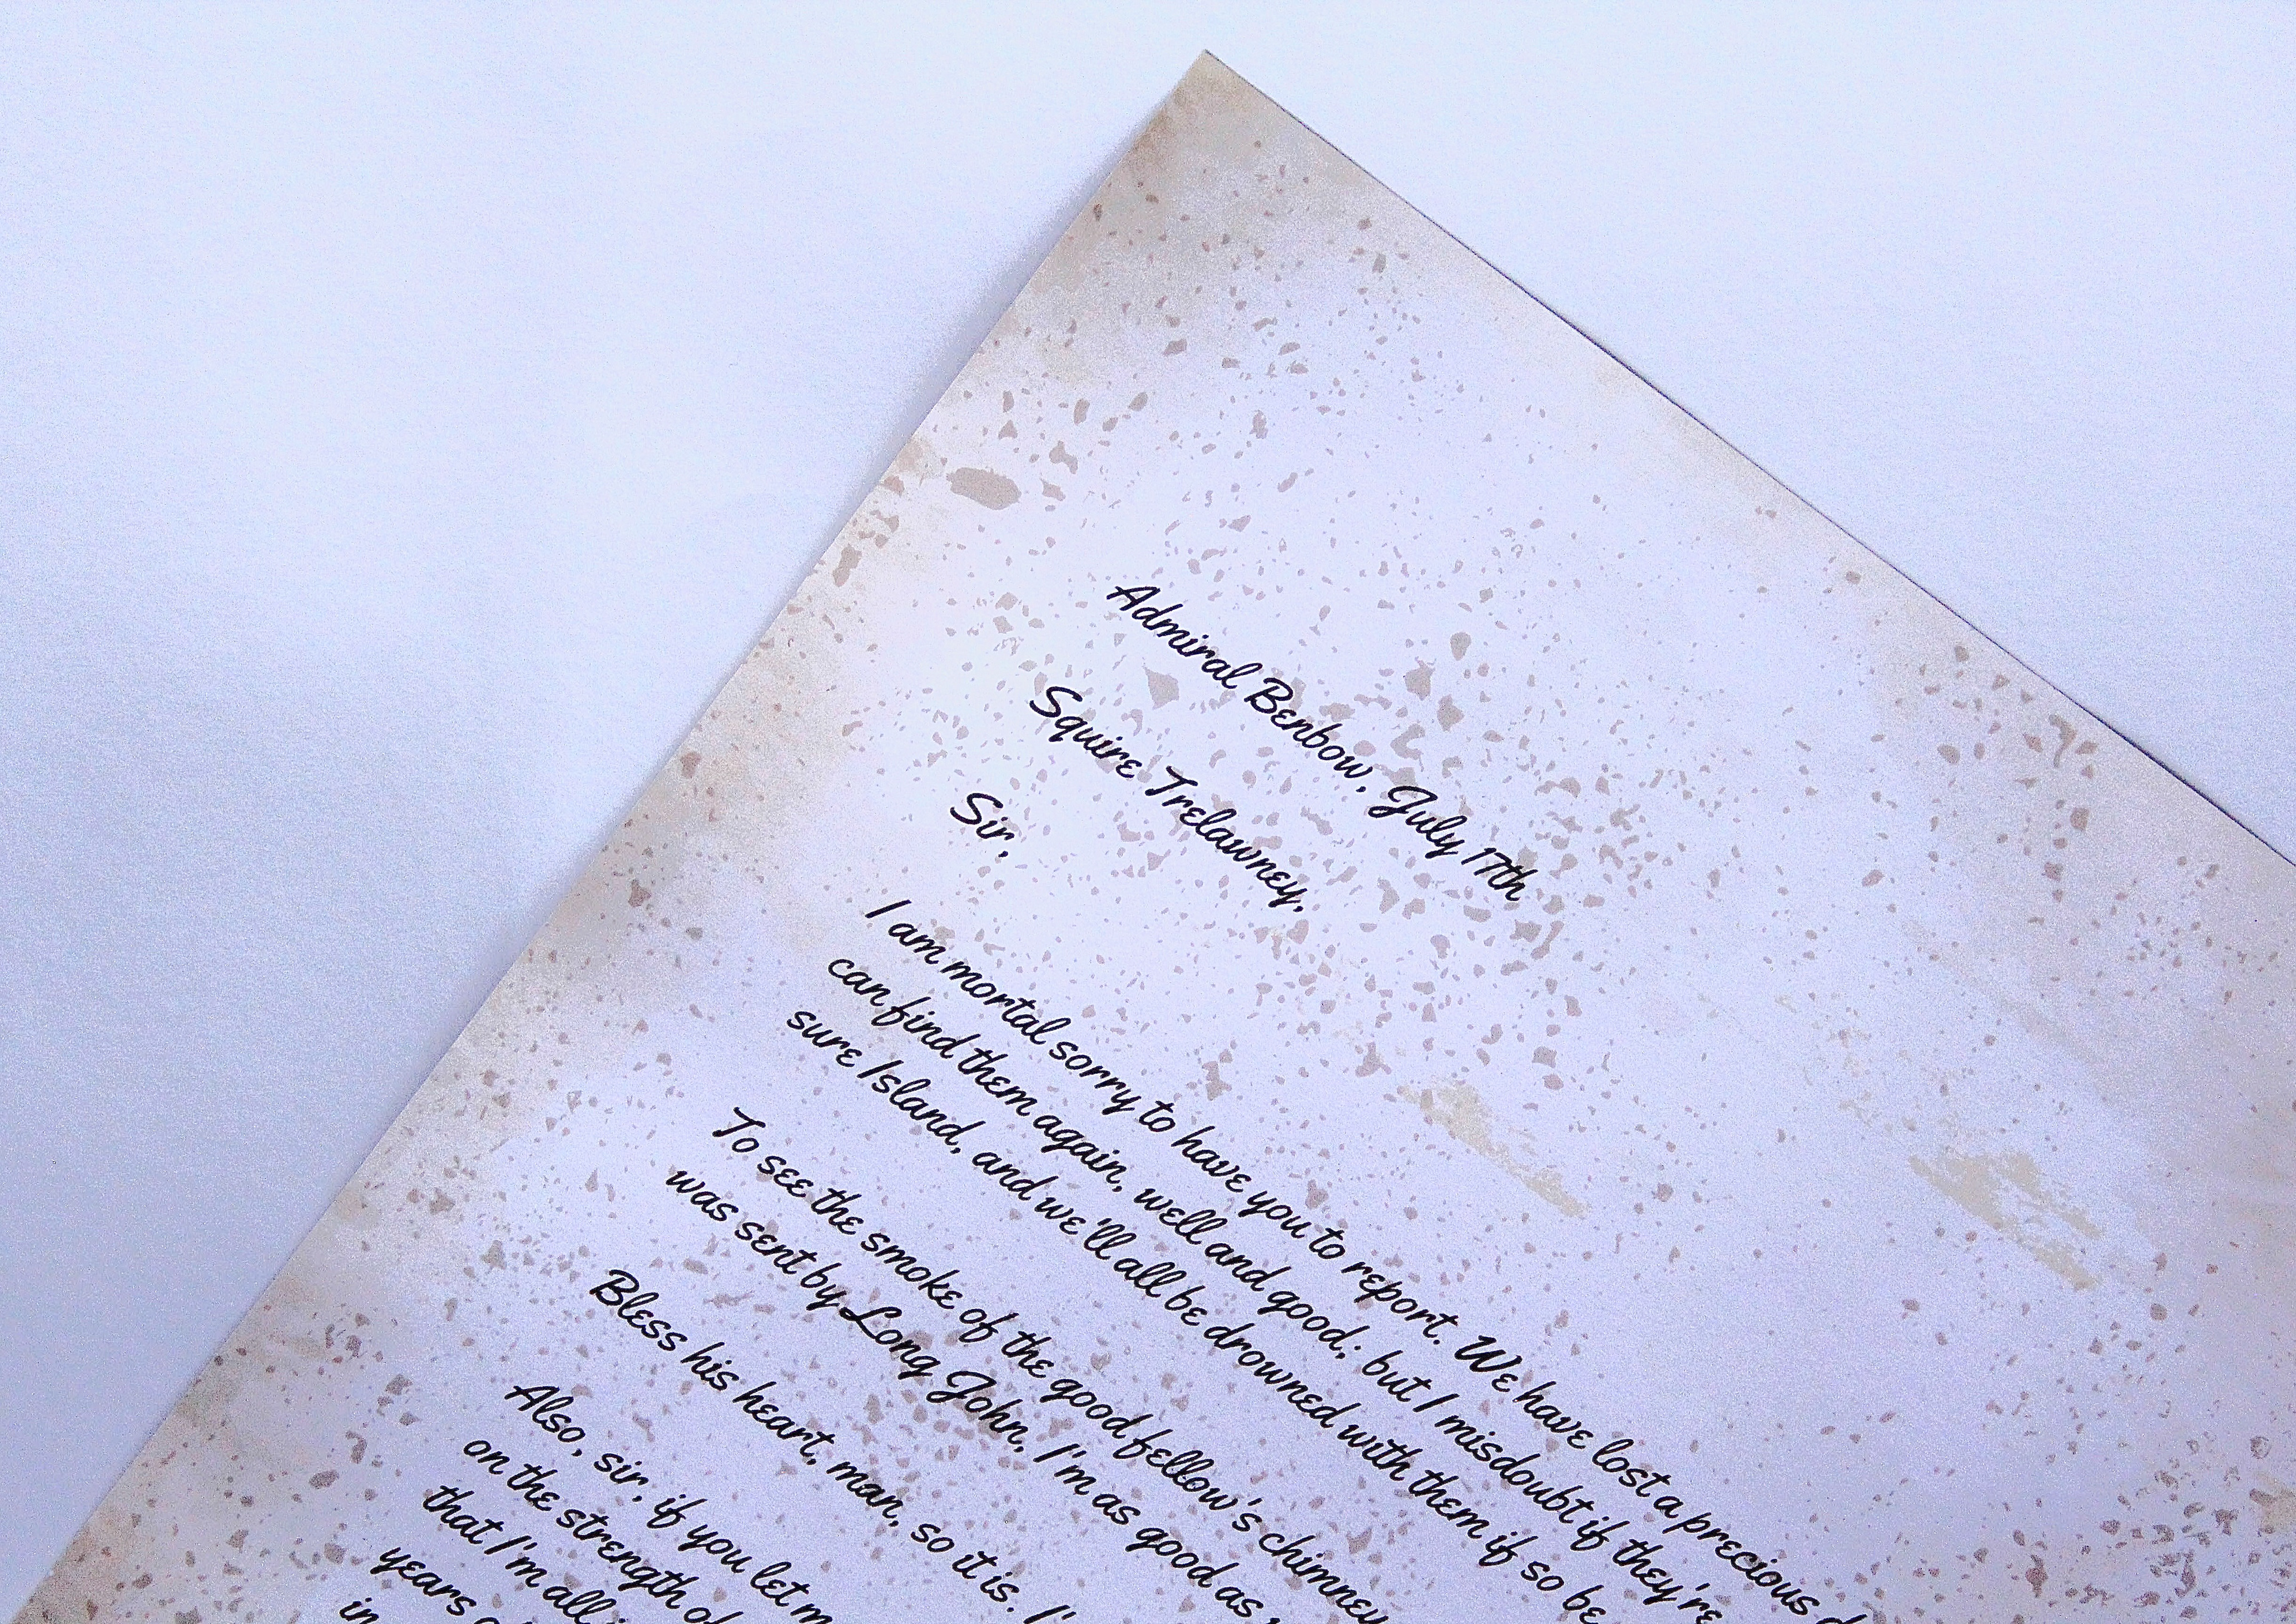 Admiral Benbow, July 17th
Squire Trelawney,
Sir,
I am mortal sorry to have you to report. We have lost a precious
can find them again, well and good; but I misdoubt if they're
sure Island, and we'll all be drowned with them if so be
To see the smoke of the good fellow's chimney
was sent by Long John, I'm as good as
Bless his heart, man, so it is. I'
Also, sir, if you let
on the strength
that I'm all
years
in